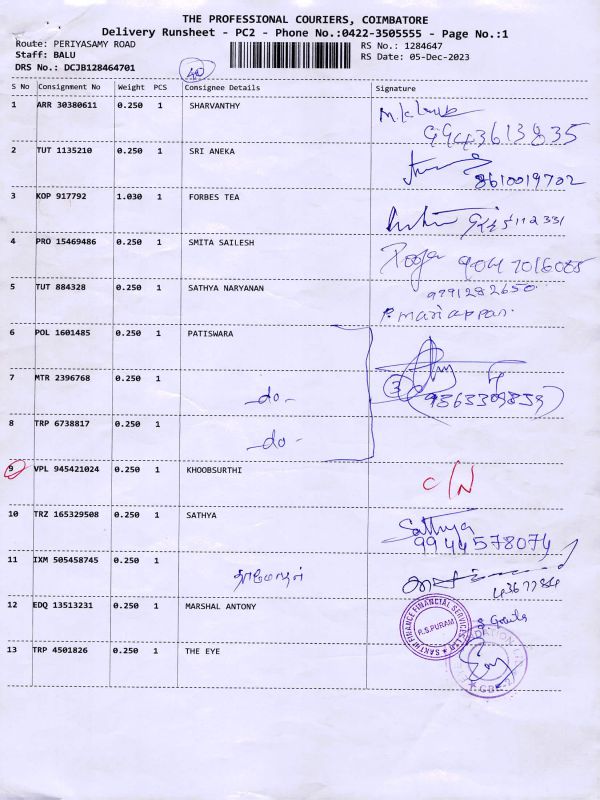 THE PROFESSIONAL COURIERS, COIMBATORE
Delivery Runsheet - PC2 - Phone No.:0422-3505555 - Page No.:1
Route: PERIYASAMY ROAD RS No.: 1284647
Staff: BALU RS Date: 05-Dec-2023
DRS No.: DCJB128464701
S No Consignment No Weight PCS Consignee Details Signature
1 ARR 30380611 0.250 1 SHARVANTHY
9943613835
2 TUT 1135210 0.250 1 SRI ANEKA
8610019702
3 KOP 917792 1.030 1 FORBES TEA
4 PRO 15469486 0.250 1 SMITA SAILESH
Pooja
5 TUT 884328 0.250 1 SATHYA NARYANAN
9791282650
P. Mariappan.
6 POL 1601485 0.250 1 PATISWARA
7 MTR 2396768 0.250 1 -do-
3
8 TRP 6738817 0.250 1 -do-
9 VPL 945421024 0.250 1 KHOOBSURTHI
C/N
10 TRZ 165329508 0.250 1 SATHYA
Sathya
9944578074
11 IXM 505458745 0.250 1
12 EDQ 13513231 0.250 1 MARSHAL ANTONY
R.S.PURAM
13 TRP 4501826 0.250 1 THE EYE